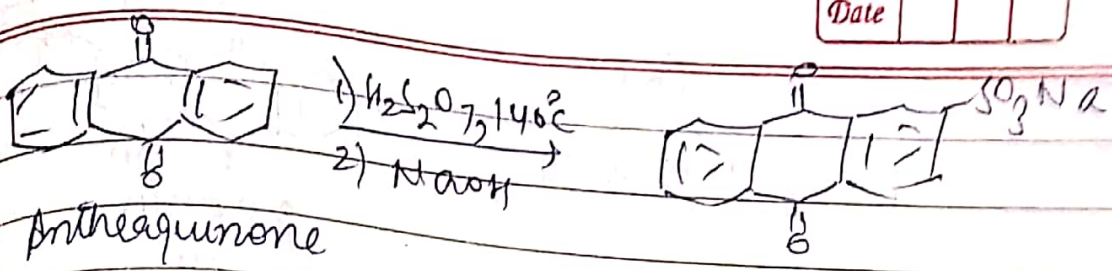 Date
O
1) H2S2O7, 140°C
2) NaOH
O
Antheaquinone
O
SO3Na
O